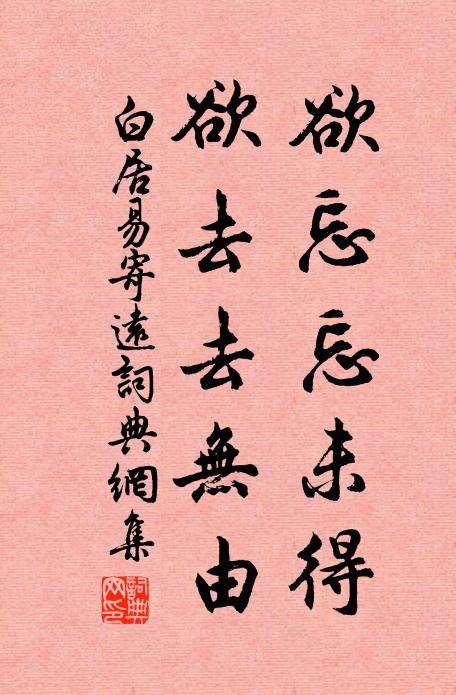 欲忘忘未得
欲去去無由
白居易寄遠詞典網集
詞典
网印